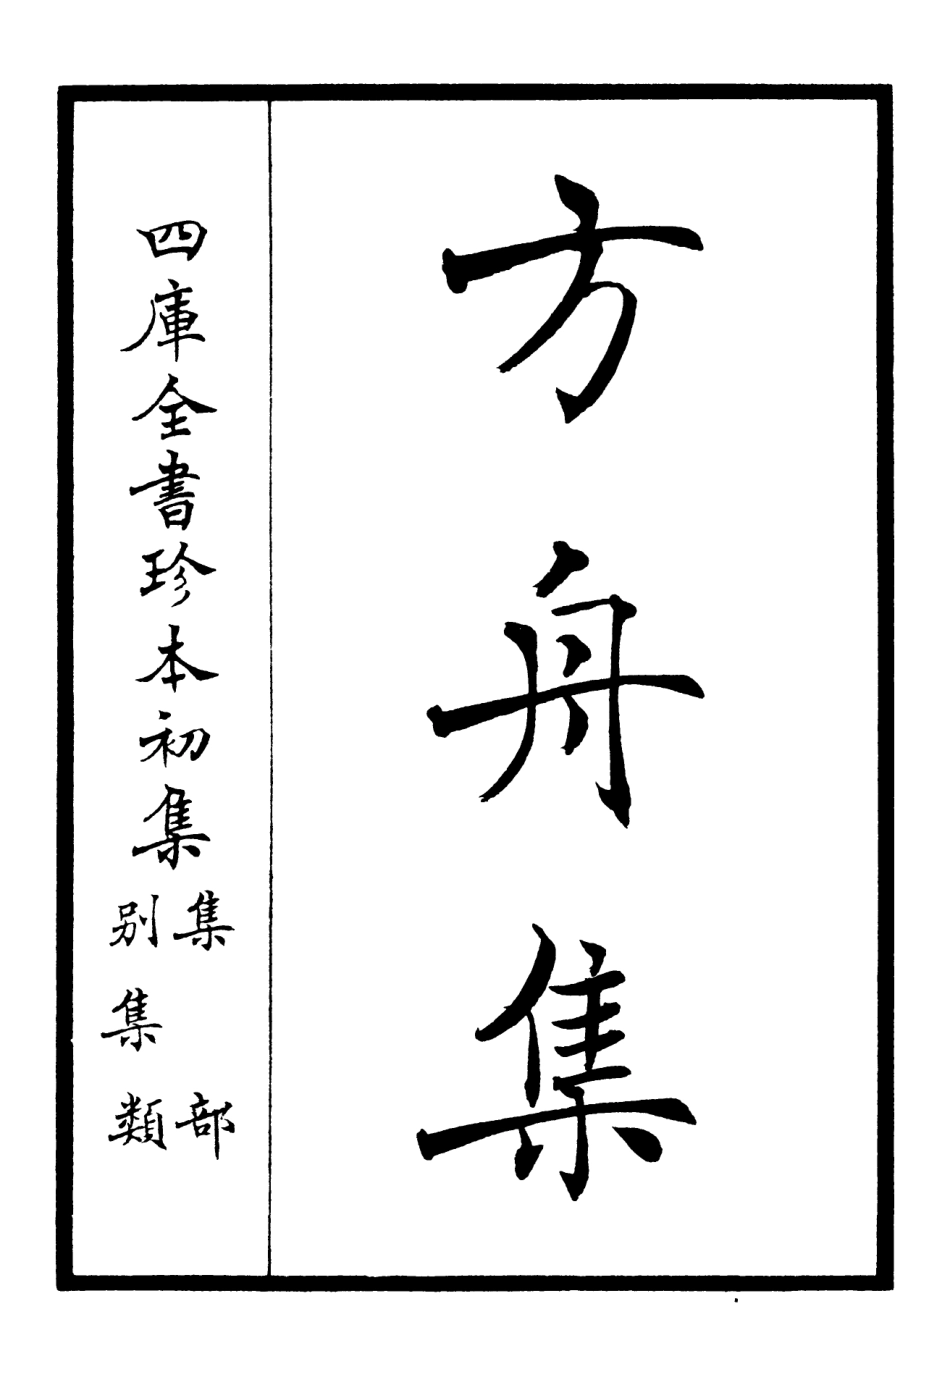 方舟集
四庫全書珍本初集
集部
别集類